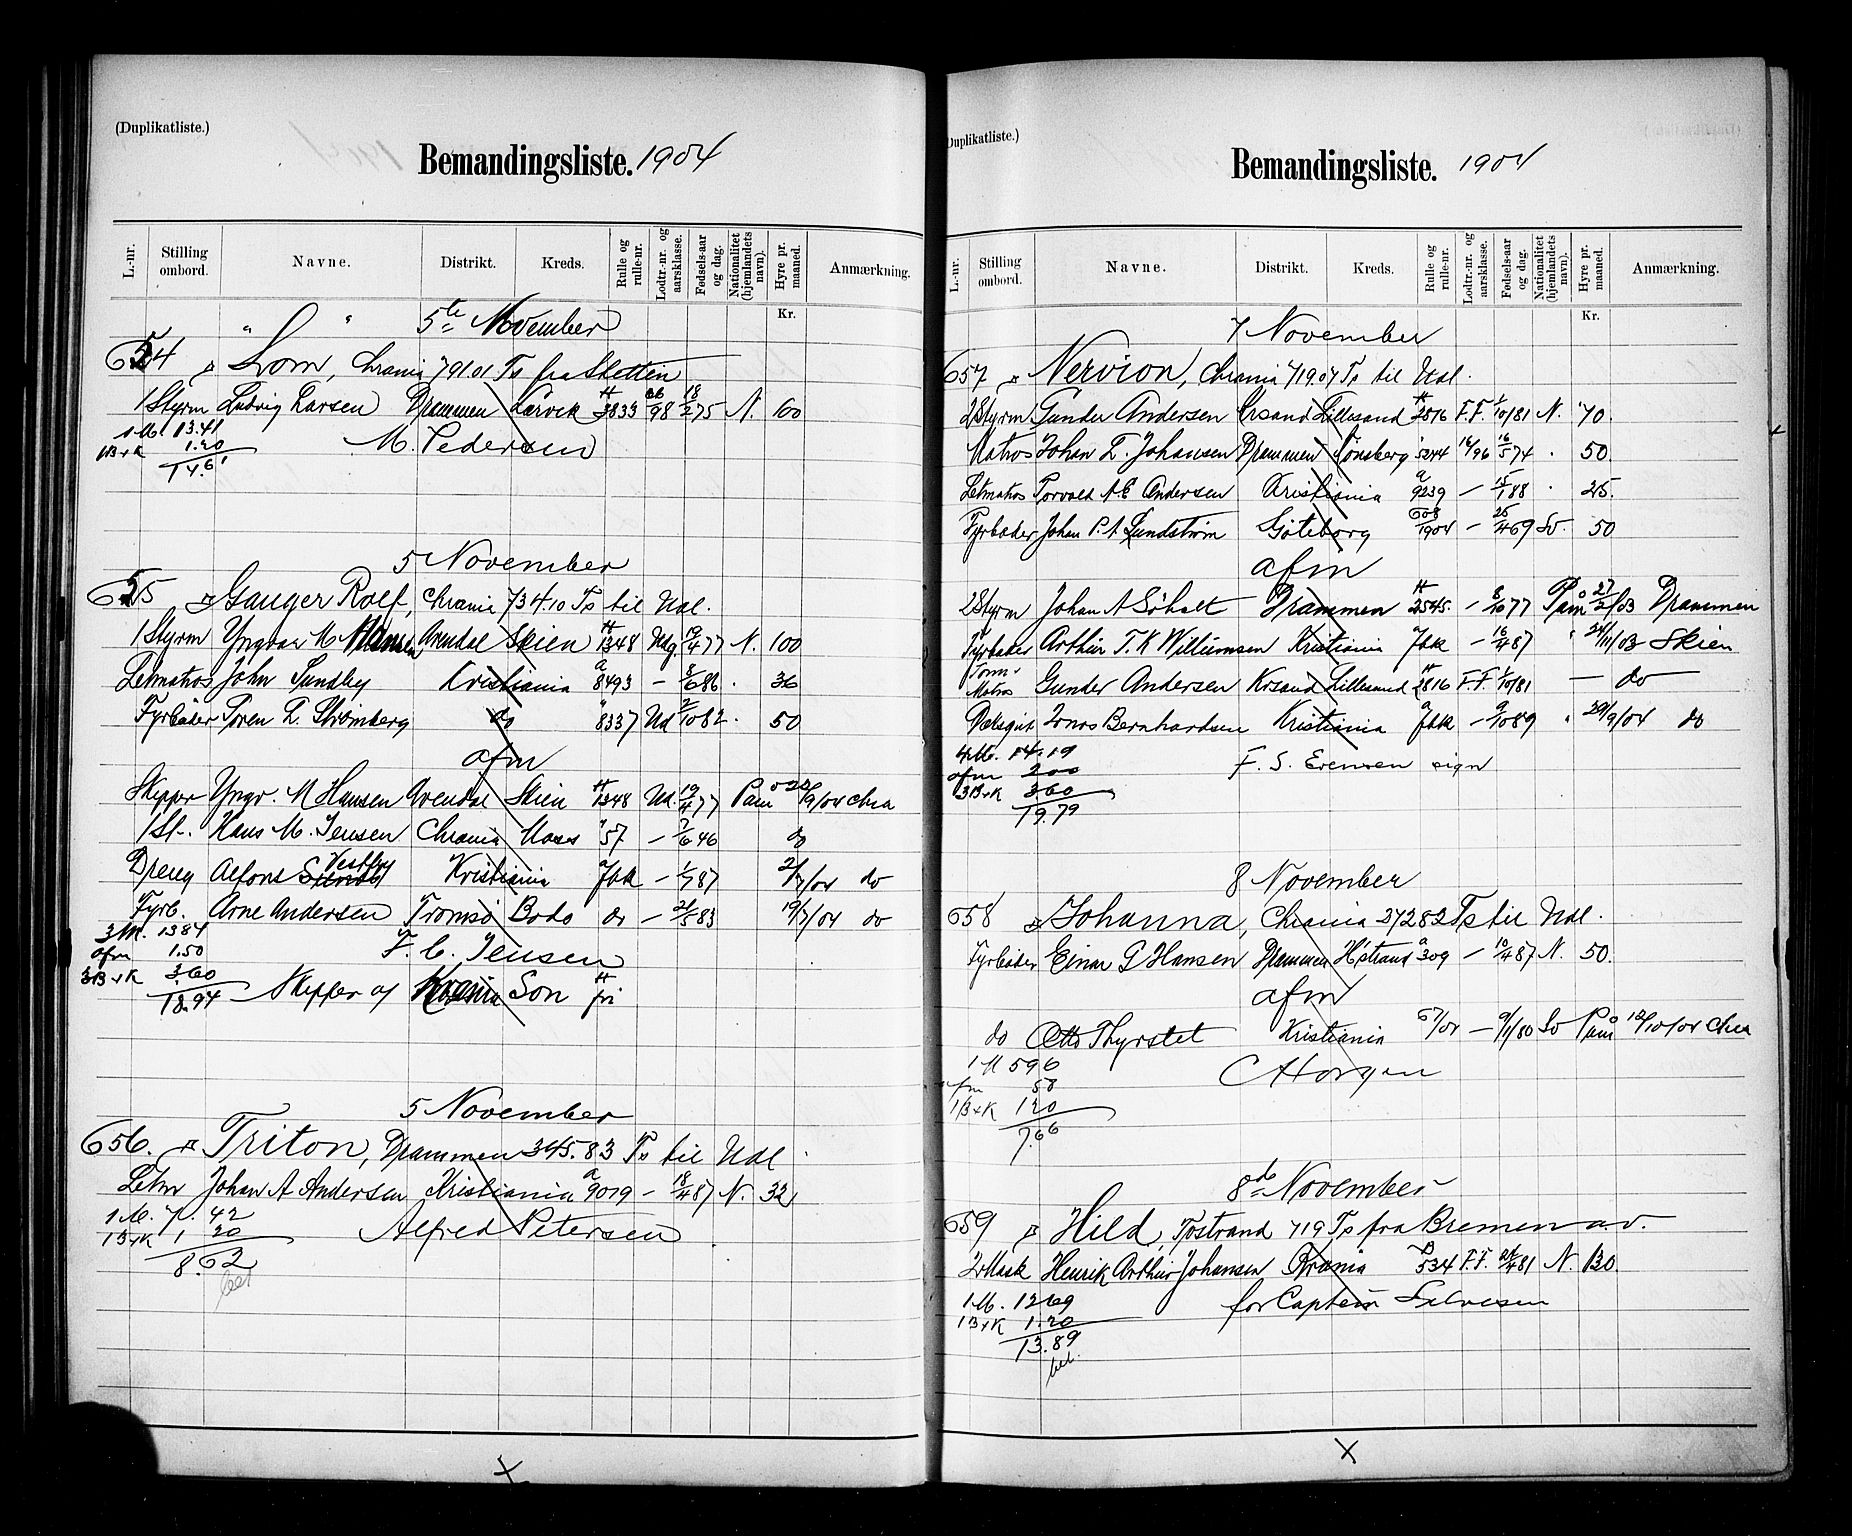 (Duplikatliste.)
Bemandingsliste. 1904
L.-nr. Stilling ombord. Navne. Distrikt. Kreds. Rulle og rulle-nr. Lodtr.-nr. og aarsklasse. Fødsels-aar og dag. Nationalitet (hjemlandets navn). Hyre pr. maaned. Anmærkning.
Kr.
" " 5te November
654 Lom, Chrania 791.01 Ts fra Stettin
1 Styrm Ludvig Larsen Drammen Larvik H 3833 98 18/2 75 N. 100
1 M. 13.41
1B+K 1.20
14.61
M. Pedersen
5 November
655 Ganger Rolf, Chrania 734.10 Ts til Udl.
1 Styrm Yngvar M Hansen Arendal Skien H 1348 Udg 19/4 77 N. 100
Letmatros John Sundby Kristiania a 8493 - 8/6 86 . 36
Fyrbøder Søren L. Strømberg do " 8337 Ud 2/10 82 . 50
afm
Skipper Yngv. M Hansen Arendal Skien H 1348 Ud. 19/4 77 Paam 23/9/04 Chra
1 St. Hans M. Jensen Chrania Moss " 57 - 7/6 46 do
Dreng Alfons Vestby Kristiania Jbk - 1/7 87 2/7/04 do
Fyrb. Arne Andersen Tromsø Bodo do - 21/5 83 19/7/04 do
3 M. 13 84
afm 1.50
3B+K 3.60
18.94
F. C. Jensen
Skipper af Kra Son H fri
5 November
656. Triton, Drammen 345.83 Ts til Udl
Letm Johan A Andersen Kristiania a 9019 - 18/4 87 N. 32
1 M. 7. 42
1B+K 1 20
8.62
bet
Alfred Petersen
(Duplikatliste.)
Bemandingsliste. 1904
L.-nr. Stilling ombord. Navne. Distrikt. Kreds. Rulle og rulle-nr. Lodtr.-nr. og aarsklasse. Fødsels-aar og dag. Nationalitet (hjemlandets navn). Hyre pr. maaned. Anmærkning.
Kr.
7 November
657 Nervion, Chrania 719.07 Ts til Udl.
2 Styrm Gunder Andersen Krsand Lillesand H 2816 F.F. 1/10/81 N. 70
Matros Johan L. Johansen Drammen Tønsberg " 5244 16/96 16/5 74 . 50
Letmatros Torvald A E Andersen Kristiania a 9239 - 15/1 88 . 25.
Fyrbøder Johan P. A Lundstrøm Göteborg 608/1904 - 25/4 69 Sv. 50
afm
2 Styrm Johan A Søholt Drammen H 2545. - 8/10 77 Paam 27/2/03 Drammen
Fyrbøder Arthur T. K Williumsen Kristiania Jbk - 16/4 87 " 24/11/03 Skien
Tøm. Matros Gunder Andersen Krsand Lillesand H 2816 F.F. 1/10/81 - do -
Dæksgut Jonas Bernhardsen Kristiania Jbk - 9/10 89 " 29/9/04 do
4 M. 14.19
afm 2 00
3B+K 3 60
19.79
F. S. Evensen sign
8 November
658 Johanna, Chrania 272 82 Ts til Udl.
Fyrbøder Einar G Hansen Drammen H'strand a 309 - 10/4 87 N. 50.
afm
do Otto Thyrstet Kristiania 57/04 - 9/1/80 Sv Paam 12/10/04 Chra
1 M 5 96
afm 50
1B+K 1 20
7.66
C Horgen
8de November
659 Hild, Tvstrand 719 Ts fra Bremen a.v.
2 Mask Henrik Arthur Johansen Chrania 534 F.F. 24/4 81 N. 130.
1 M. 12 69
1B+K 1.20
13.89
bet.
for Captein Salvesen